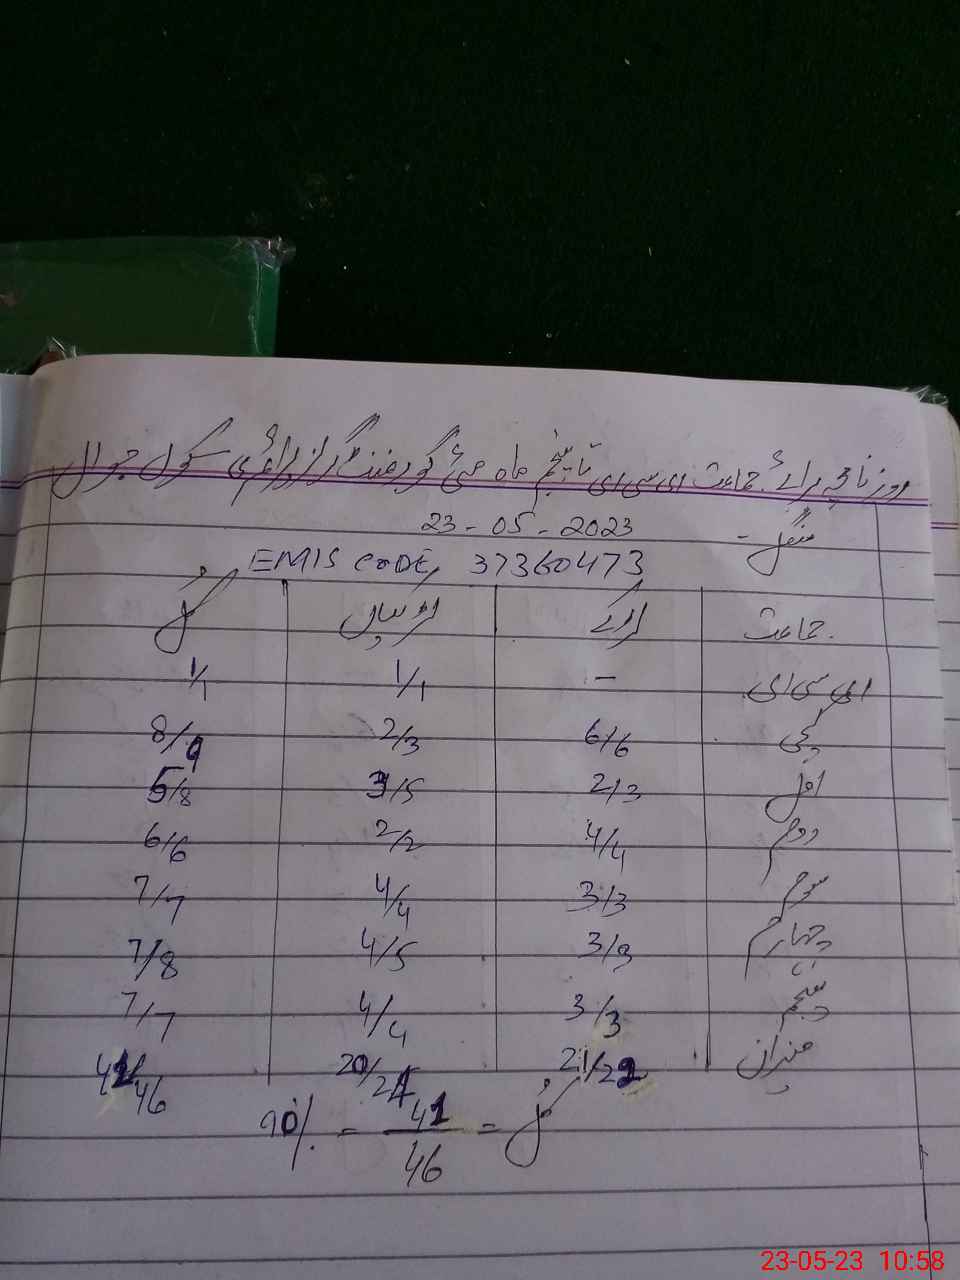 روزنامچہ برائے جماعت ای سی ای تا پنجم ماہ مئی گورنمنٹ گرلز پرائمری سکول
منگل - 23-05-2023
EMIS CODE 37360473
جماعت لڑکے لڑکیاں کل
ای سی ای - 1/1 1/1
کچی 6/6 2/3 8/9
اول 2/3 3/5 5/8
دوم 4/4 2/2 6/6
سوم 3/3 4/4 7/7
چہارم 3/3 4/5 7/8
پنجم 3/3 4/4 7/7
میزان 21/22 20/24 41/46
کل = 41/46 = 90%
23-05-23 10:58